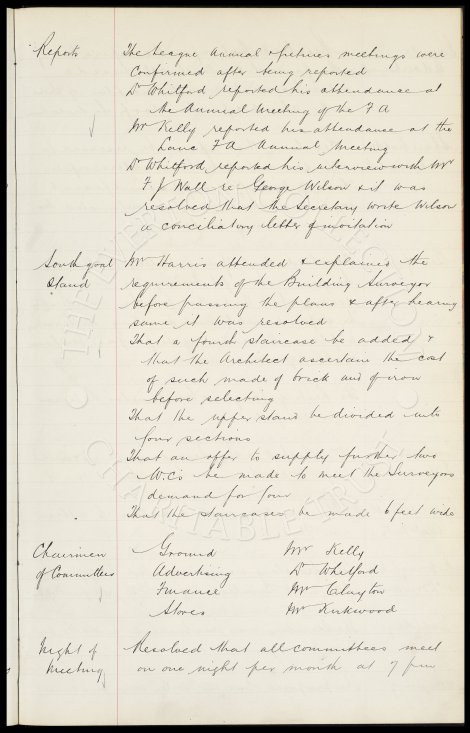 Reports
The League Annual & fixtures meetings were
confirmed after being reported
Dr Whitford reported his attendance at
the Annual Meeting of the F A
Mr Kelly reported his attendance at the
Lanc F A Annual Meeting
Dr Whitford reported his interview with Mr
F J Wall re George Wilson & it was
resolved that the Secretary write Wilson
a conciliatory letter of invitation
South goal
Stand
Mr Harris attended & explained the
requirements of the Building Surveyor
before passing the plans & after hearing
same it was resolved
That a fourth staircase be added &
that the Architect ascertain the cost
of such made of brick and of iron
before selecting
That the upper stand be divided into
four sections
That an offer to supply further two
W.Cs be made to meet the Surveyors
demand for four
That the staircases be made 6 feet wide
Chairmen
of Committees
Ground Mr Kelly
Advertising Dr Whitford
Finance Mr Clayton
Stores Mr Kirkwood
Night of
Meeting
Resolved that all committees meet
on one night per month at 7 pm
CHARITABLE TRUST